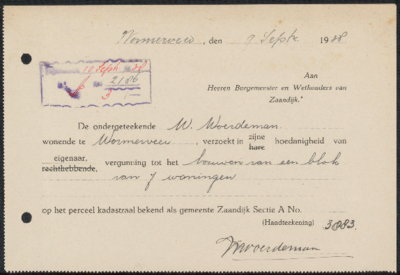 Wormerveer, den 9 Septr 1938
10 Sept 38
2186
Aan
Heeren Burgemeester en Wethouders van
Zaandijk.
De ondergeteekende W. Woerdeman.
wonende te Wormerveer, verzoekt in zijne hare hoedanigheid van
eigenaar, rechthebbende, vergunning tot het bouwen van een blok
van 7 woningen
op het perceel kadastraal bekend als gemeente Zaandijk Sectie A No. 3883.
(Handteekening)
Woerdeman